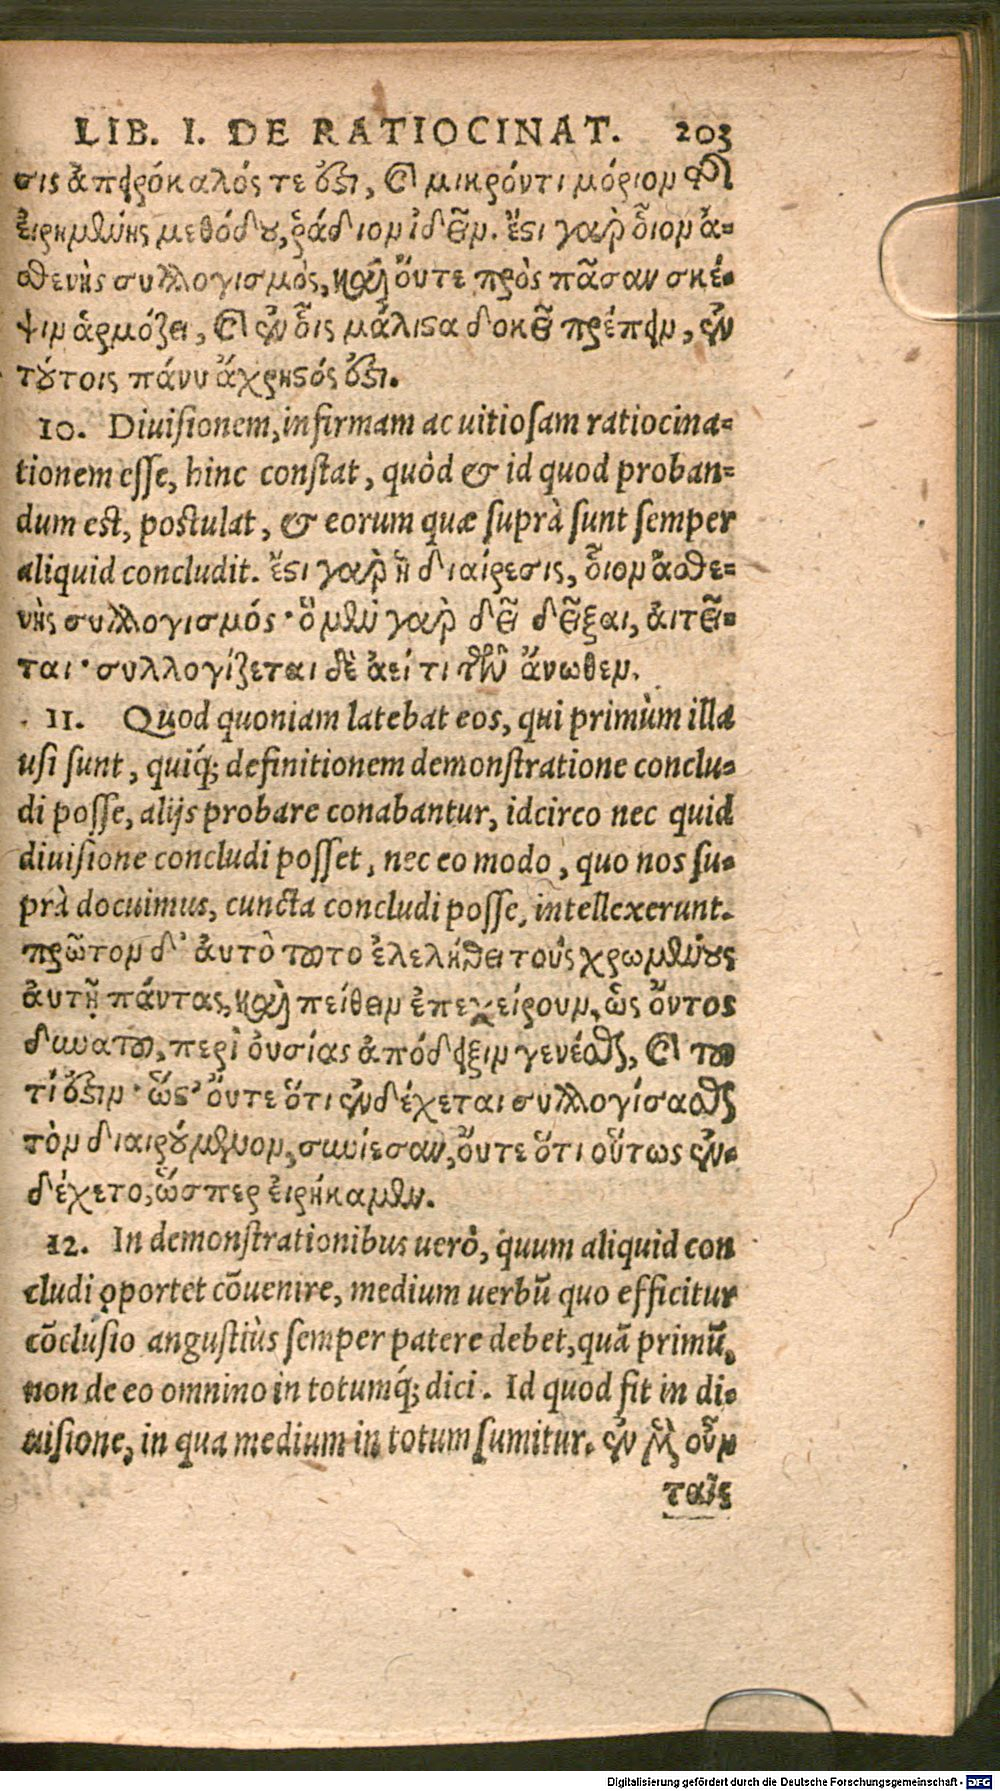 LIB. I. DE RATIOCINAT. 203
σις ἀπειρόκαλός τε ὄξι, καὶ μικρόν τι μόριον τῆς
εἰρημένης μεθόδου, ῥάδιον ἰδεῖν. ἔστι γὰρ οἷον ἀ-
σθενὴς συλλογισμὸς, καὶ οὔτε πρὸς πᾶσαν σκέ-
ψιν ἁρμόζει, καὶ ἐν οἷς μάλιστα δοκεῖ πρέπειν, ἐν
τούτοις πάνυ ἄχρηστός ὄξι.
10. Diuisionem, infirmam ac uitiosam ratiocina-
tionem esse, hinc constat, quòd & id quod proban-
dum est, postulat, & eorum quæ suprà sunt semper
aliquid concludit. ἔστι γὰρ ἡ διαίρεσις, οἷον ἀσθε-
νὴς συλλογισμός· ὃ μὲν γὰρ δεῖ δεῖξαι, αἰτεῖ-
ται· συλλογίζεται δὲ ἀεί τι τῶν ἄνωθεν.
11. Quod quoniam latebat eos, qui primùm illa
usi sunt, quiq́; definitionem demonstratione conclu-
di posse, alijs probare conabantur, idcirco nec quid
diuisione concludi posset, nec eo modo, quo nos su-
prà docuimus, cuncta concludi posse, intellexerunt.
πρῶτον δ' αὐτὸ τοῦτο ἐλελήθει τοὺς χρωμένους
αὐτῇ πάντας, καὶ πείθειν ἐπεχείρουν, ὡς ὄντος
δυνατοῦ, περὶ οὐσίας ἀπόδειξιν γενέσθαι, καὶ τοῦ
τί ὄξιν· ὥστ' οὔτε ὅτι ἐνδέχεται συλλογίσασθαι
τὸν διαιρούμενον, συνίεσαν, οὔτε ὅτι οὕτως ἐν-
δέχετο, ὥσπερ εἰρήκαμεν.
12. In demonstrationibus uerò, quum aliquid con
cludi oportet cōuenire, medium uerbū quo efficitur
cōclusio angustiùs semper patere debet, quā primū,
non de eo omnino in totumq́; dici. Id quod fit in di-
uisione, in qua medium in totum sumitur. ἐν μὲν οὖν
ταῖς
Digitalisierung gefördert durch die Deutsche Forschungsgemeinschaft - DFG